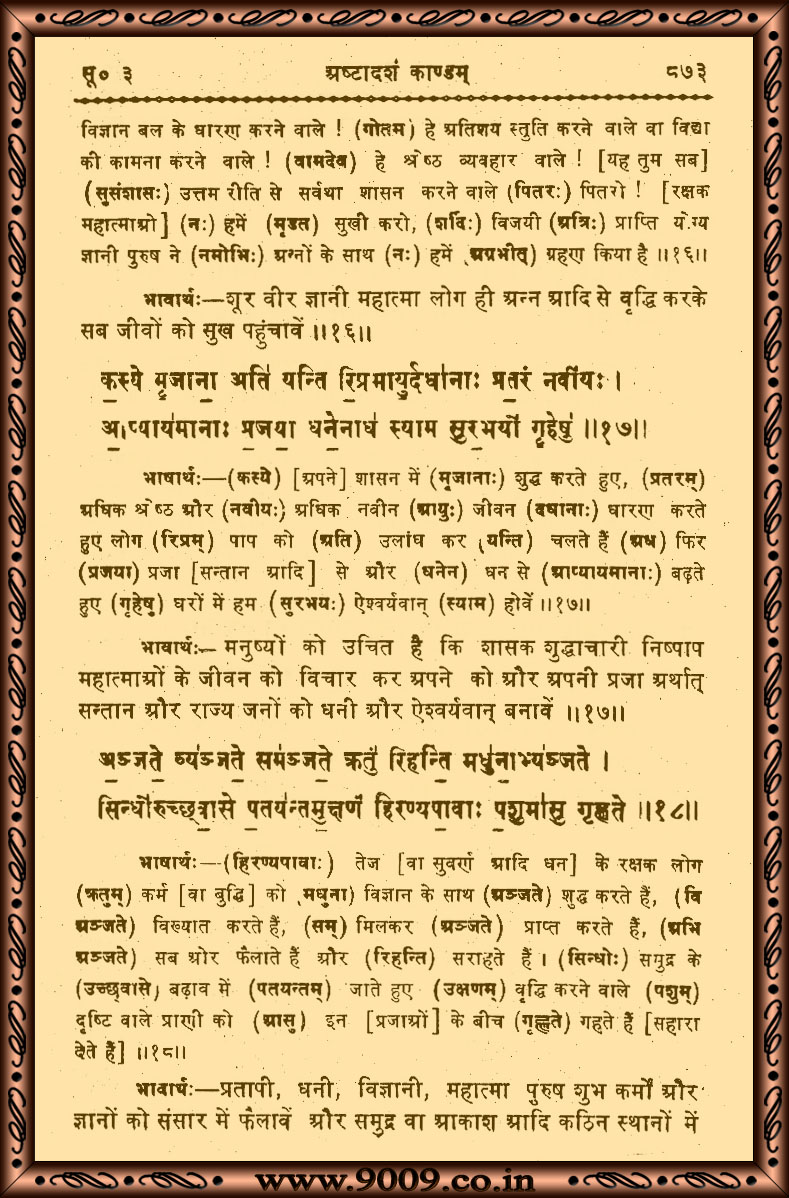 सू० ३ अष्टादशं काण्डम् ८७३
विज्ञान बल के धारण करने वाले ! (गोतम) हे अतिशय स्तुति करने वाले वा विद्या
की कामना करने वाले ! (वामदेव) हे श्रेष्ठ व्यवहार वाले ! [यह तुम सब]
(सुसंशासः) उत्तम रीति से सर्वथा शासन करने वाले (पितरः) पितरो ! [रक्षक
महात्माओ] (नः) हमें (मृडत) सुखी करो, (शर्दिः) विजयी (अत्रिः) प्राप्ति योग्य
ज्ञानी पुरुष ने (नमोभिः) अन्नों के साथ (नः) हमें (अग्रभीत्) ग्रहण किया है ॥१६॥
भावार्थः—शूर वीर ज्ञानी महात्मा लोग ही अन्न आदि से वृद्धि करके
सब जीवों को सुख पहुंचावें ॥१६॥
क॒स्ये मृ॑जा॒ना अति॑ यन्ति रि॒प्रमायु॒र्दधा॑नाः प्रत॒रं नवी॑यः ।
आ॒प्याय॑मानाः प्र॒जया॒ धने॒नाध॑ स्याम सुर॒भयो॑ गृ॒हेषु॑ ॥१७॥
भाषार्थः—(कस्ये) [अपने] शासन में (मृजानाः) शुद्ध करते हुए, (प्रतरम्)
अधिक श्रेष्ठ और (नवीयः) अधिक नवीन (आयुः) जीवन (दधानाः) धारण करते
हुए लोग (रिप्रम्) पाप को (अति) उलांघ कर (यन्ति) चलते हैं (अध) फिर
(प्रजया) प्रजा [सन्तान आदि] से और (धनेन) धन से (आप्यायमानाः) बढ़ते
हुए (गृहेषु) घरों में हम (सुरभयः) ऐश्वर्यवान् (स्याम) होवें ॥१७॥
भावार्थः— मनुष्यों को उचित है कि शासक शुद्धाचारी निष्पाप
महात्माओं के जीवन को विचार कर अपने को और अपनी प्रजा अर्थात्
सन्तान और राज्य जनों को धनी और ऐश्वर्यवान् बनावें ॥१७॥
अ॒ञ्जते॒ व्य॑ञ्जते॒ सम॑ञ्जते॒ क्रतुं॑ रिहन्ति॒ मधु॑ना॒भ्य॑ञ्जते ।
सिन्धो॑रुच्छ्वा॒से प॒तय॑न्तमु॒क्षणं॑ हिरण्यपा॒वाः प॒शुमा॑सु गृह्णते ॥१८॥
भाषार्थः—(हिरण्यपावाः) तेज [वा सुवर्ण आदि धन] के रक्षक लोग
(क्रतुम्) कर्म [वा बुद्धि] को (मधुना) विज्ञान के साथ (अञ्जते) शुद्ध करते हैं, (वि
अञ्जते) विख्यात करते हैं, (सम्) मिलकर (अञ्जते) प्राप्त करते हैं, (अभि
अञ्जते) सब ओर फैलाते हैं और (रिहन्ति) सराहते हैं । (सिन्धोः) समुद्र के
(उच्छ्वासे) बढ़ाव में (पतयन्तम्) जाते हुए (उक्षणम्) वृद्धि करने वाले (पशुम्)
दृष्टि वाले प्राणी को (आसु) इन [प्रजाओं] के बीच (गृह्णते) गहते हैं [सहारा
देते हैं] ॥१८॥
भावार्थः—प्रतापी, धनी, विज्ञानी, महात्मा पुरुष शुभ कर्मों और
ज्ञानों को संसार में फैलावें और समुद्र वा आकाश आदि कठिन स्थानों में
www.9009.co.in